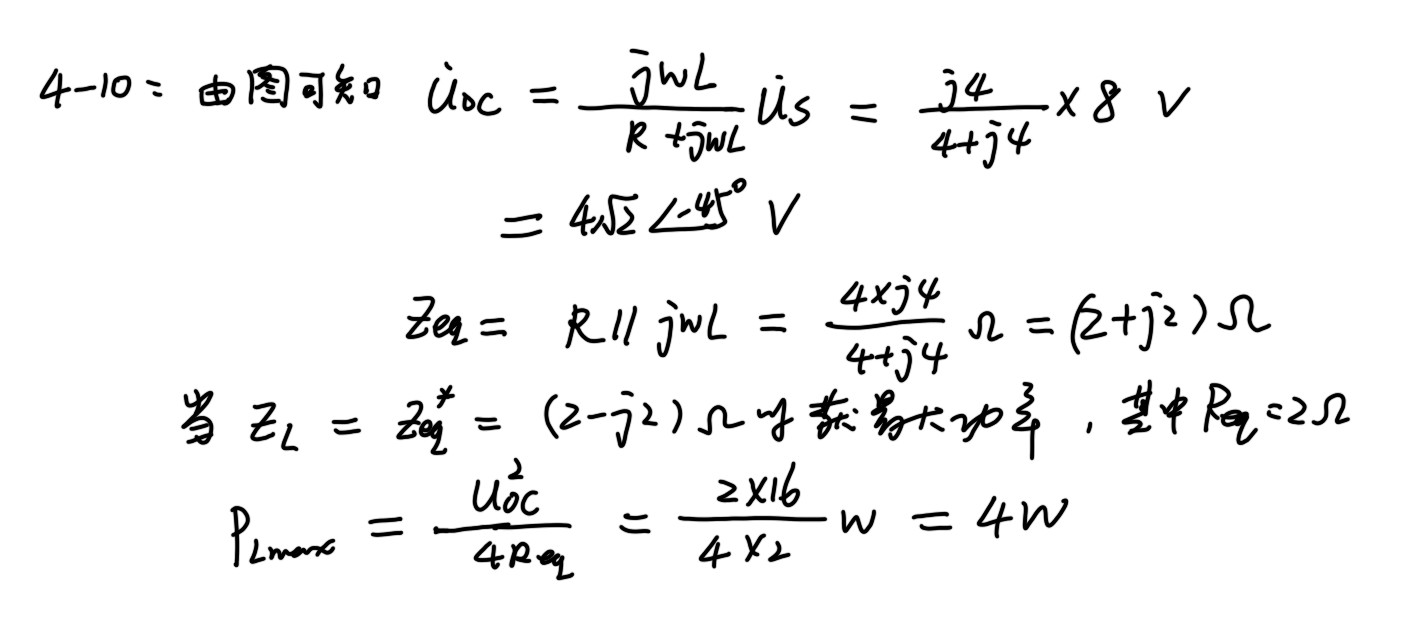 4-10: 由图可知 U̇oc = jwL / (R + jwL) U̇s = j4 / (4+j4) × 8 V
= 4√2 ∠-45° V
Zeq = R // jwL = 4×j4 / (4+j4) Ω = (2+j2) Ω
当 ZL = Zeq* = (2-j2) Ω 时获最大功率, 其中 Req = 2Ω
PLmax = Uoc² / 4Req = 2×16 / 4×2 W = 4W